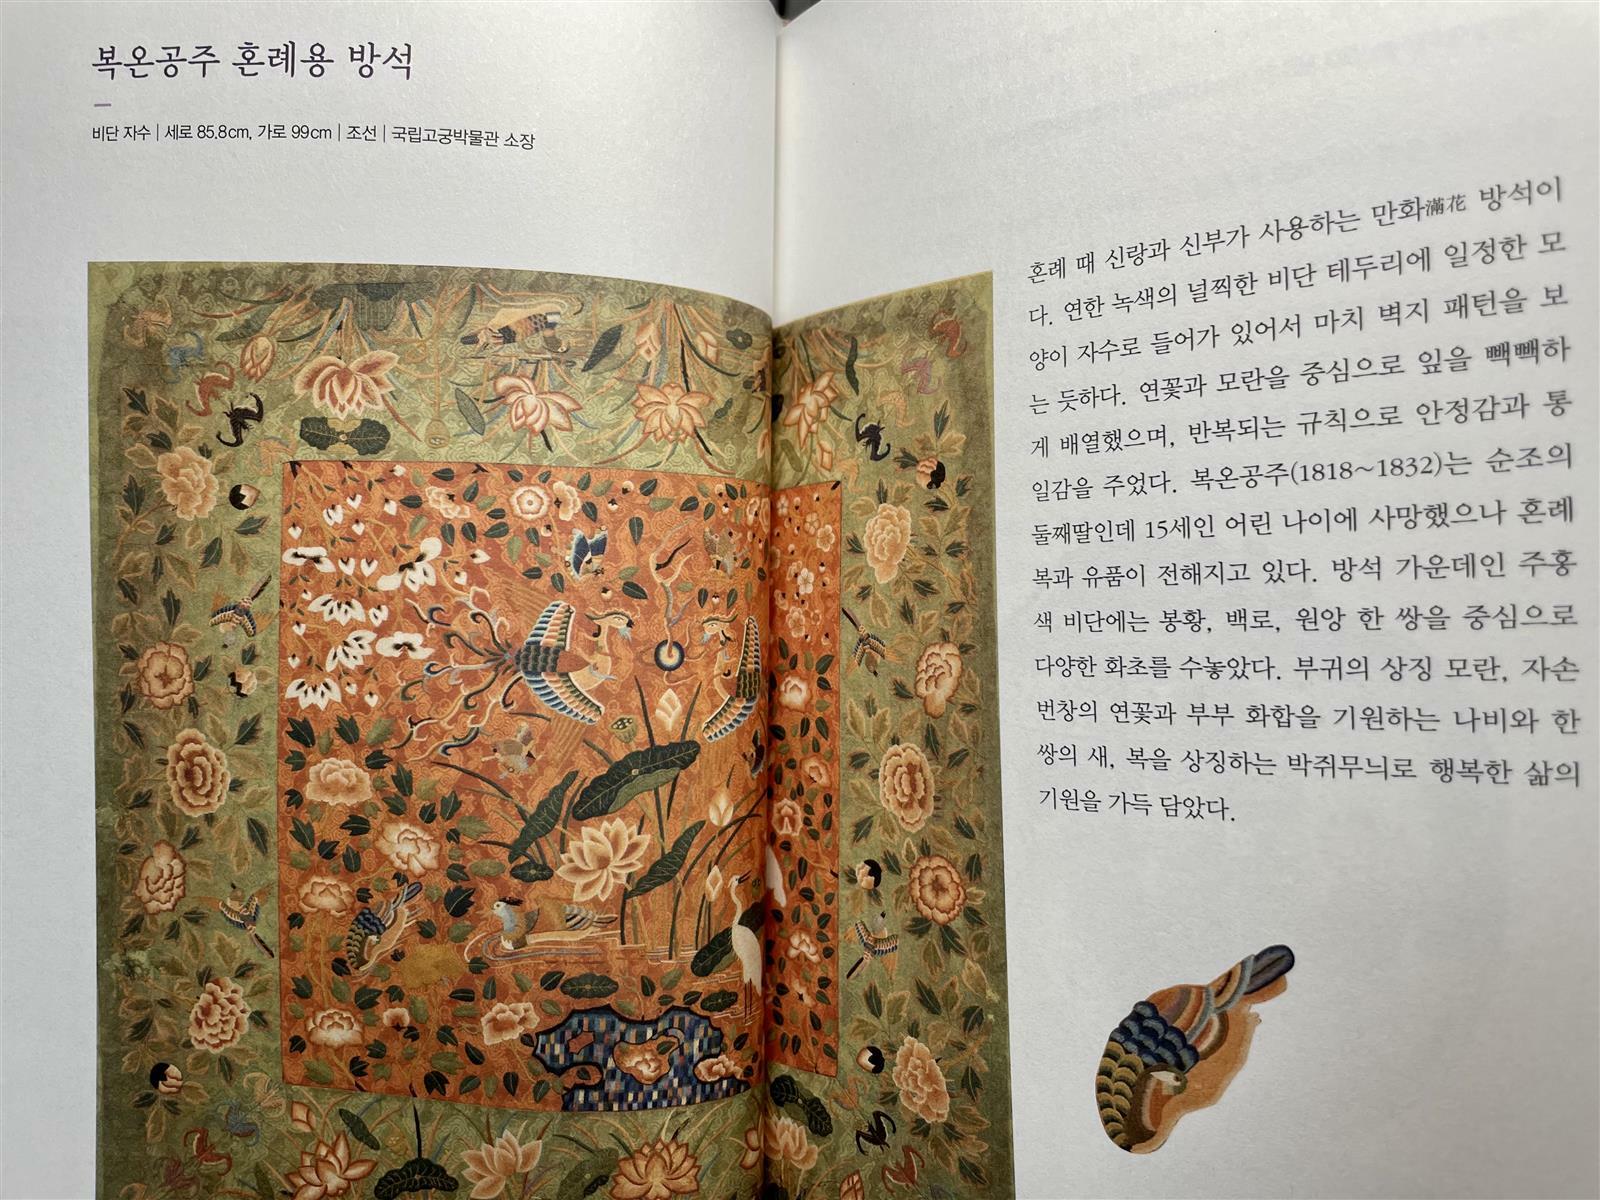 복온공주 혼례용 방석
비단 자수 | 세로 85.8cm, 가로 99cm | 조선 | 국립고궁박물관 소장
혼례 때 신랑과 신부가 사용하는 만화滿花 방석이
다. 연한 녹색의 널찍한 비단 테두리에 일정한 모
양이 자수로 들어가 있어서 마치 벽지 패턴을 보
는 듯하다. 연꽃과 모란을 중심으로 잎을 빽빽하
게 배열했으며, 반복되는 규칙으로 안정감과 통
일감을 주었다. 복온공주(1818~1832)는 순조의
둘째딸인데 15세인 어린 나이에 사망했으나 혼례
복과 유품이 전해지고 있다. 방석 가운데인 주홍
색 비단에는 봉황, 백로, 원앙 한 쌍을 중심으로
다양한 화초를 수놓았다. 부귀의 상징 모란, 자손
번창의 연꽃과 부부 화합을 기원하는 나비와 한
쌍의 새, 복을 상징하는 박쥐무늬로 행복한 삶의
기원을 가득 담았다.